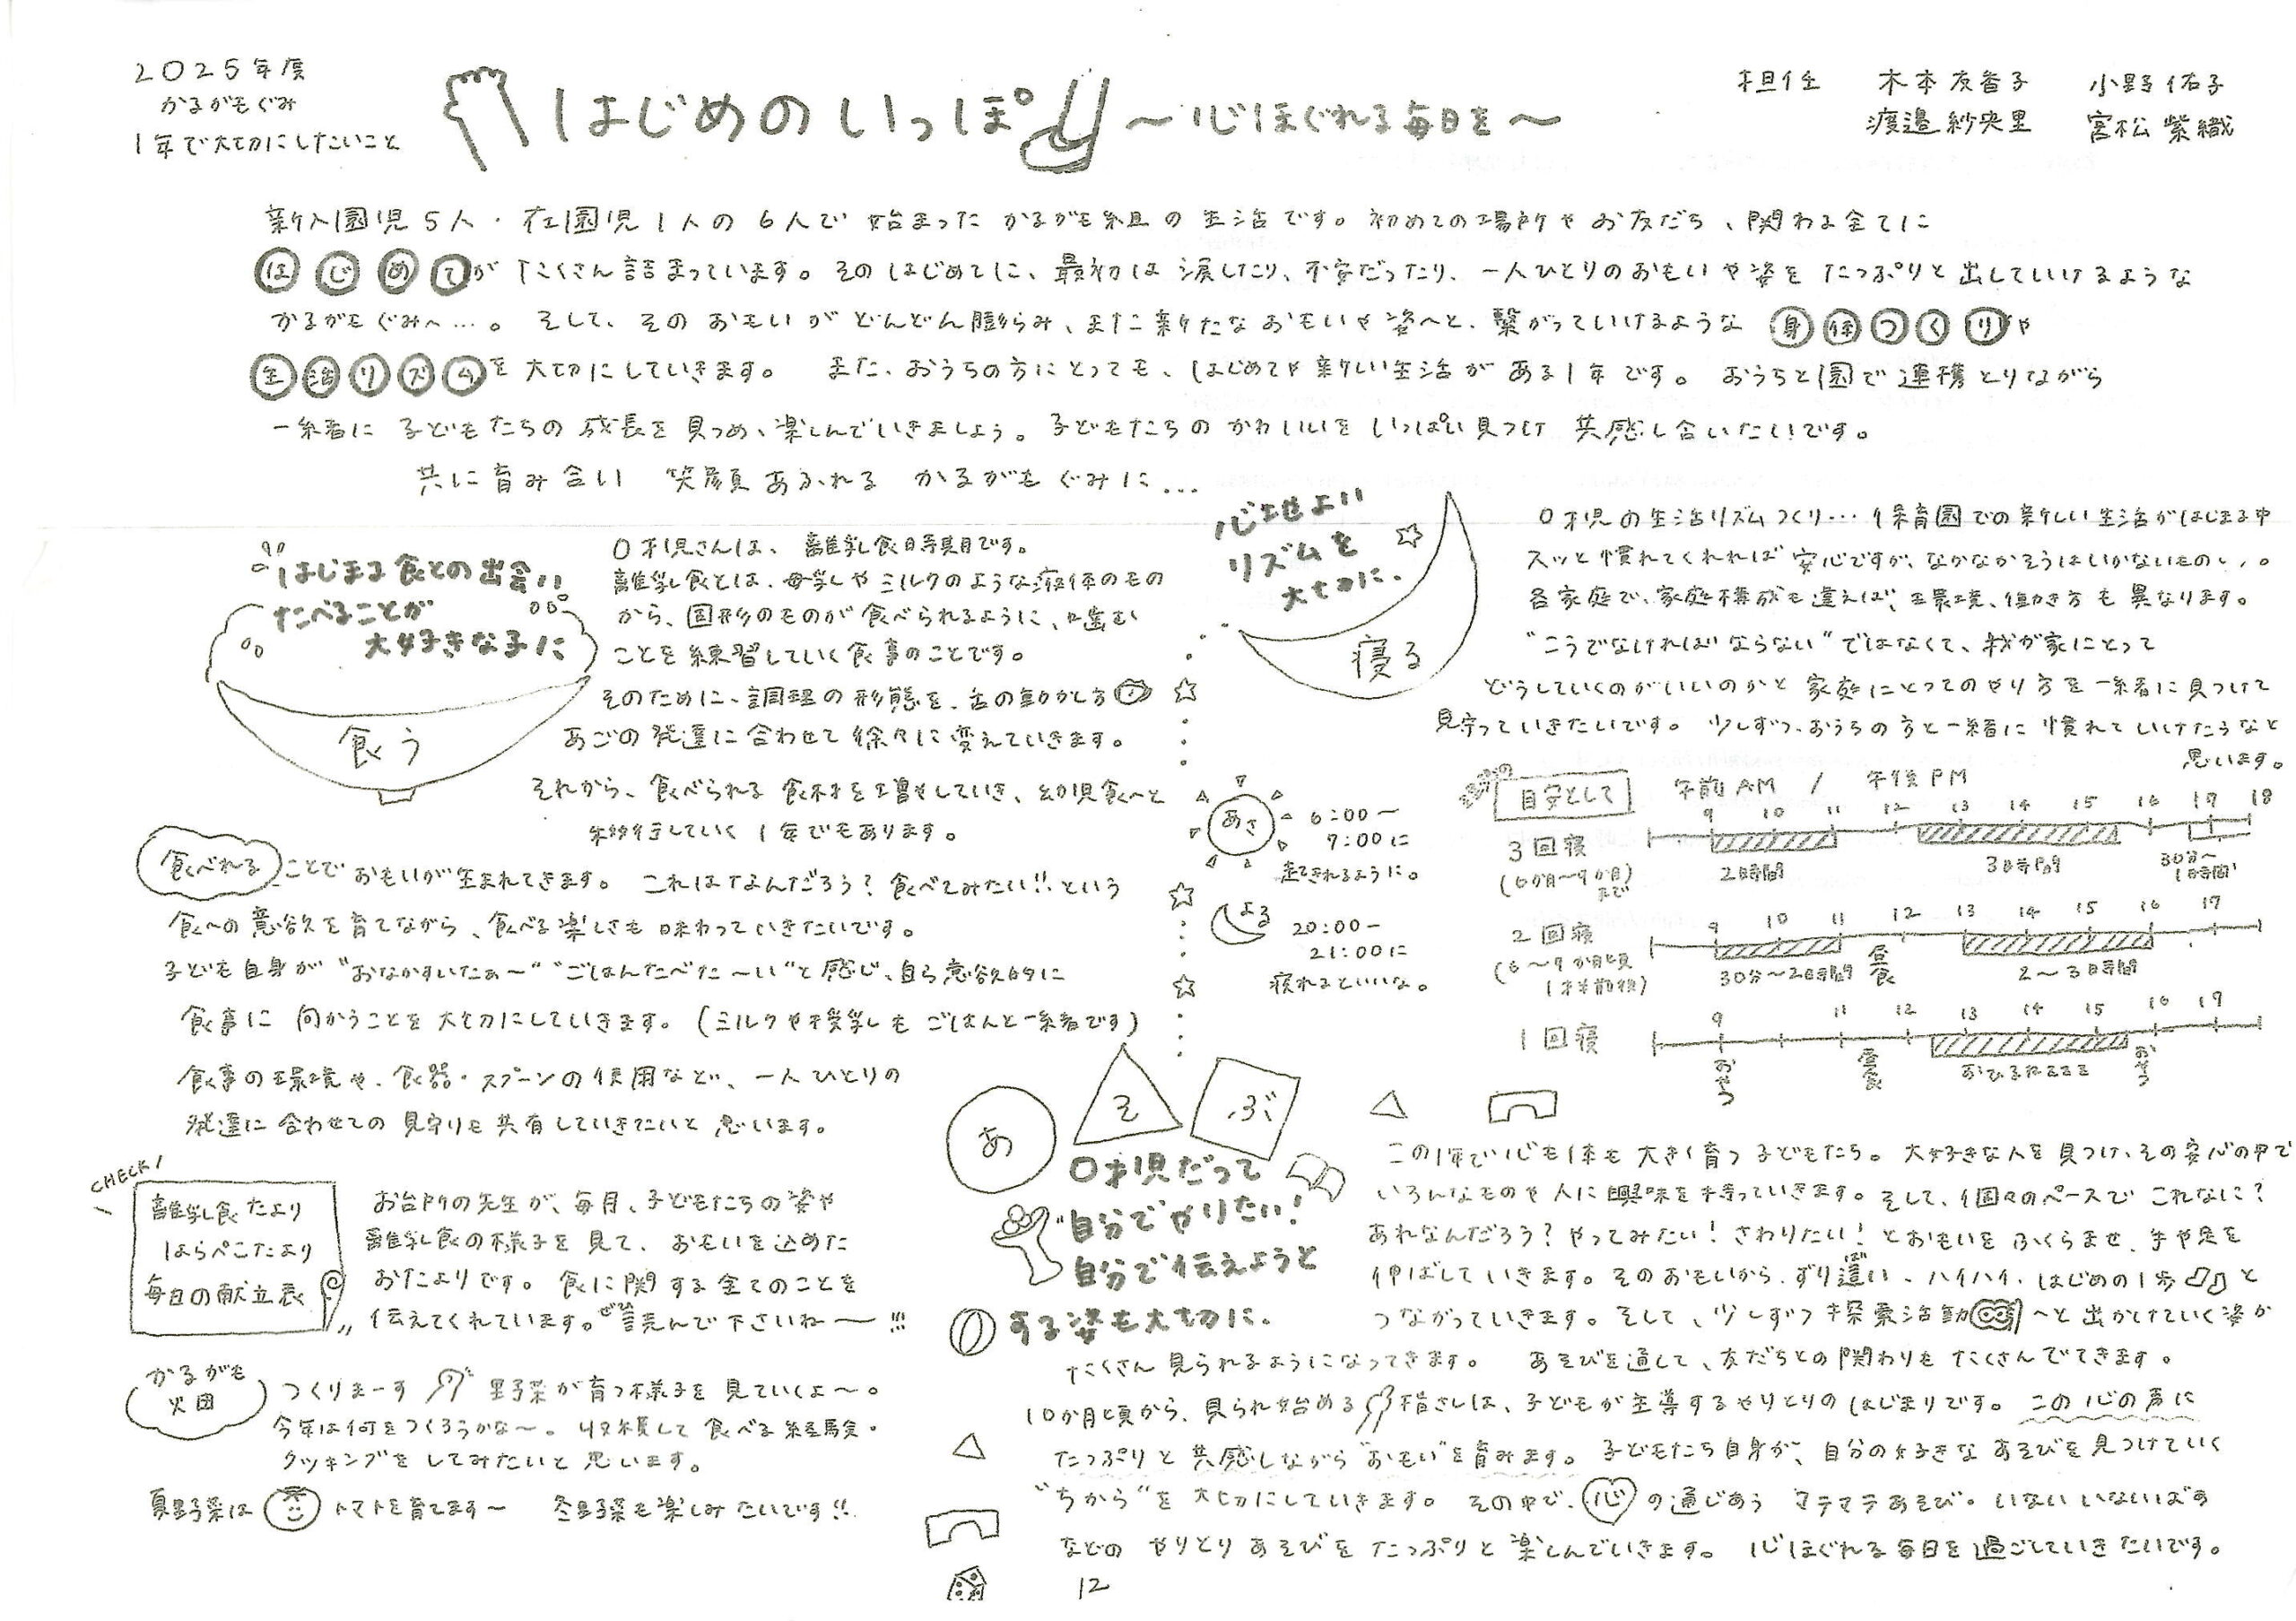 2025年度
かるがもぐみ
1年で大切にしたいこと
はじめのいっぽ
〜心ほぐれる毎日を〜
担任 木本友香子 小野佑子
渡邉紗央里 宮松紫織
新入園児5人・在園児1人の6人で始まったかるがも組の生活です。初めての場所やお友だち、関わる全てに
はじめてがたくさん詰まっています。そのはじめてに、最初は涙したり、不安だったり、一人ひとりのおもいや姿をたっぷりと出していけるような
かるがもぐみへ…。そして、そのおもいがどんどん膨らみ、また新たなおもいや姿へと、繋がっていけるような身体つくりや
生活リズムを大切にしていきます。また、おうちの方にとっても、はじめてや新しい生活がある1年です。おうちと園で連携とりながら
一緒に子どもたちの成長を見つめ、楽しんでいきましょう。子どもたちのかわいいをいっぱい見つけ共感し合いたいです。
共に育み合い 笑顔あふれる かるがもぐみに…
はじまる食との出会い!!
たべることが
大好きな子に
食う
0才児さんは、離乳食時期です。
離乳食とは、母乳やミルクのような液体のもの
から、固形のものが食べられるように、噛む
ことを練習していく食事のことです。
そのために、調理の形態を、舌の動かし方
あごの発達に合わせて徐々に変えていきます。
それから、食べられる食材を増やしていき、幼児食へと
移行していく1年でもあります。
食べれることでおもいが生まれてきます。これはなんだろう?食べてみたい!!という
食への意欲を育てながら、食べる楽しさも味わっていきたいです。
子ども自身が"おなかすいたぁ〜""ごはんたべた〜い"と感じ、自ら意欲的に
食事に向かうことを大切にしていきます。(ミルクや授乳もごはんと一緒です)
食事の環境や、食器・スプーンの使用など、一人ひとりの
発達に合わせての見守りも共有していきたいと思います。
CHECK!
離乳食たより
はらぺこたより
毎日の献立表
お台所の先生が、毎月、子どもたちの姿や
離乳食の様子を見て、おもいを込めた
おたよりです。食に関する全てのことを
伝えてくれています。ぜひ読んで下さいねー!!!
かるがも
火田
つくりまーす 野菜が育つ様子を見ていくよ〜。
今年は何をつくろうかな〜。収穫して食べる経験・
クッキングをしてみたいと思います。
夏野菜は トマトを育てます〜 冬野菜も楽しみたいです!!
心地よい
リズムを
大切に.
寝る
0才児の生活リズムつくり…保育園での新しい生活がはじまる中
スッと慣れてくれれば安心ですが、なかなかそうはいかないもの。
各家庭で、家庭構成も違えば、環境、働き方も異なります。
"こうでなければならない"ではなくて、我が家にとって
どうしていくのがいいのかと家庭にとってのやり方を一緒に見つけて
見守っていきたいです。少しずつ、おうちの方と一緒に慣れていけたらなと
思います。
あさ
6:00〜
7:00に
起きれるように。
よる
20:00〜
21:00に
寝れるといいな。
目安として 午前AM / 午後PM
9 10 11 12 13 14 15 16 17 18
3回寝
(6か月〜9か月)
まで
2時間 3時間 30分〜
1時間
9 10 11 12 13 14 15 16 17
2回寝
(6〜9か月頃
1才半前後)
30分〜2時間 昼食 2〜3時間
9 11 12 13 14 15 16 17
1回寝
おやつ 昼食 おひるねzzz おやつ
あ そ ぶ
0才児だって
"自分でやりたい!
自分で伝えようと
する姿も大切に.
この1年で心も体も大きく育つ子どもたち。大好きな人を見つけ、その安心の中で
いろんなものや人に興味を持っていきます。そして、個々のペースでこれなに?
あれなんだろう?やってみたい!さわりたい!とおもいをふくらませ、手や足を
伸ばしていきます。そのおもいから、ずり這い、ハイハイ、はじめの1歩と
つながっていきます。そして、少しずつ探索活動へと出かけていく姿が
たくさん見られるようになってきます。あそびを通して、友だちとの関わりもたくさんでてきます。
10か月頃から、見られ始める指さしは、子どもが主導するやりとりのはじまりです。この心の声に
たっぷりと共感しながら"おもい"を育みます。子どもたち自身が、自分の好きなあそびを見つけていく
"ちから"を大切にしていきます。その中で、心の通じあうマテマテあそび・いないいないばぁ
などのやりとりあそびをたっぷりと楽しんでいきます。心ほぐれる毎日を過ごしていきたいです。
12